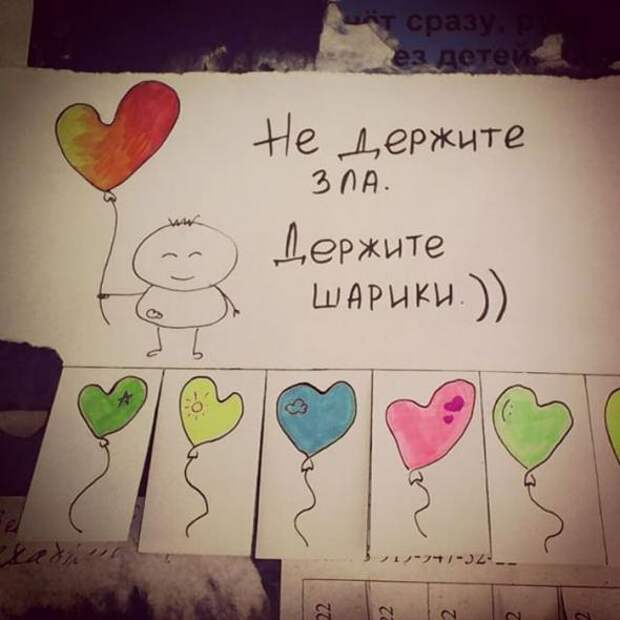 сразу,
ез детей
Не держите
зла.
Держите
шарики.))
22
22
22
22